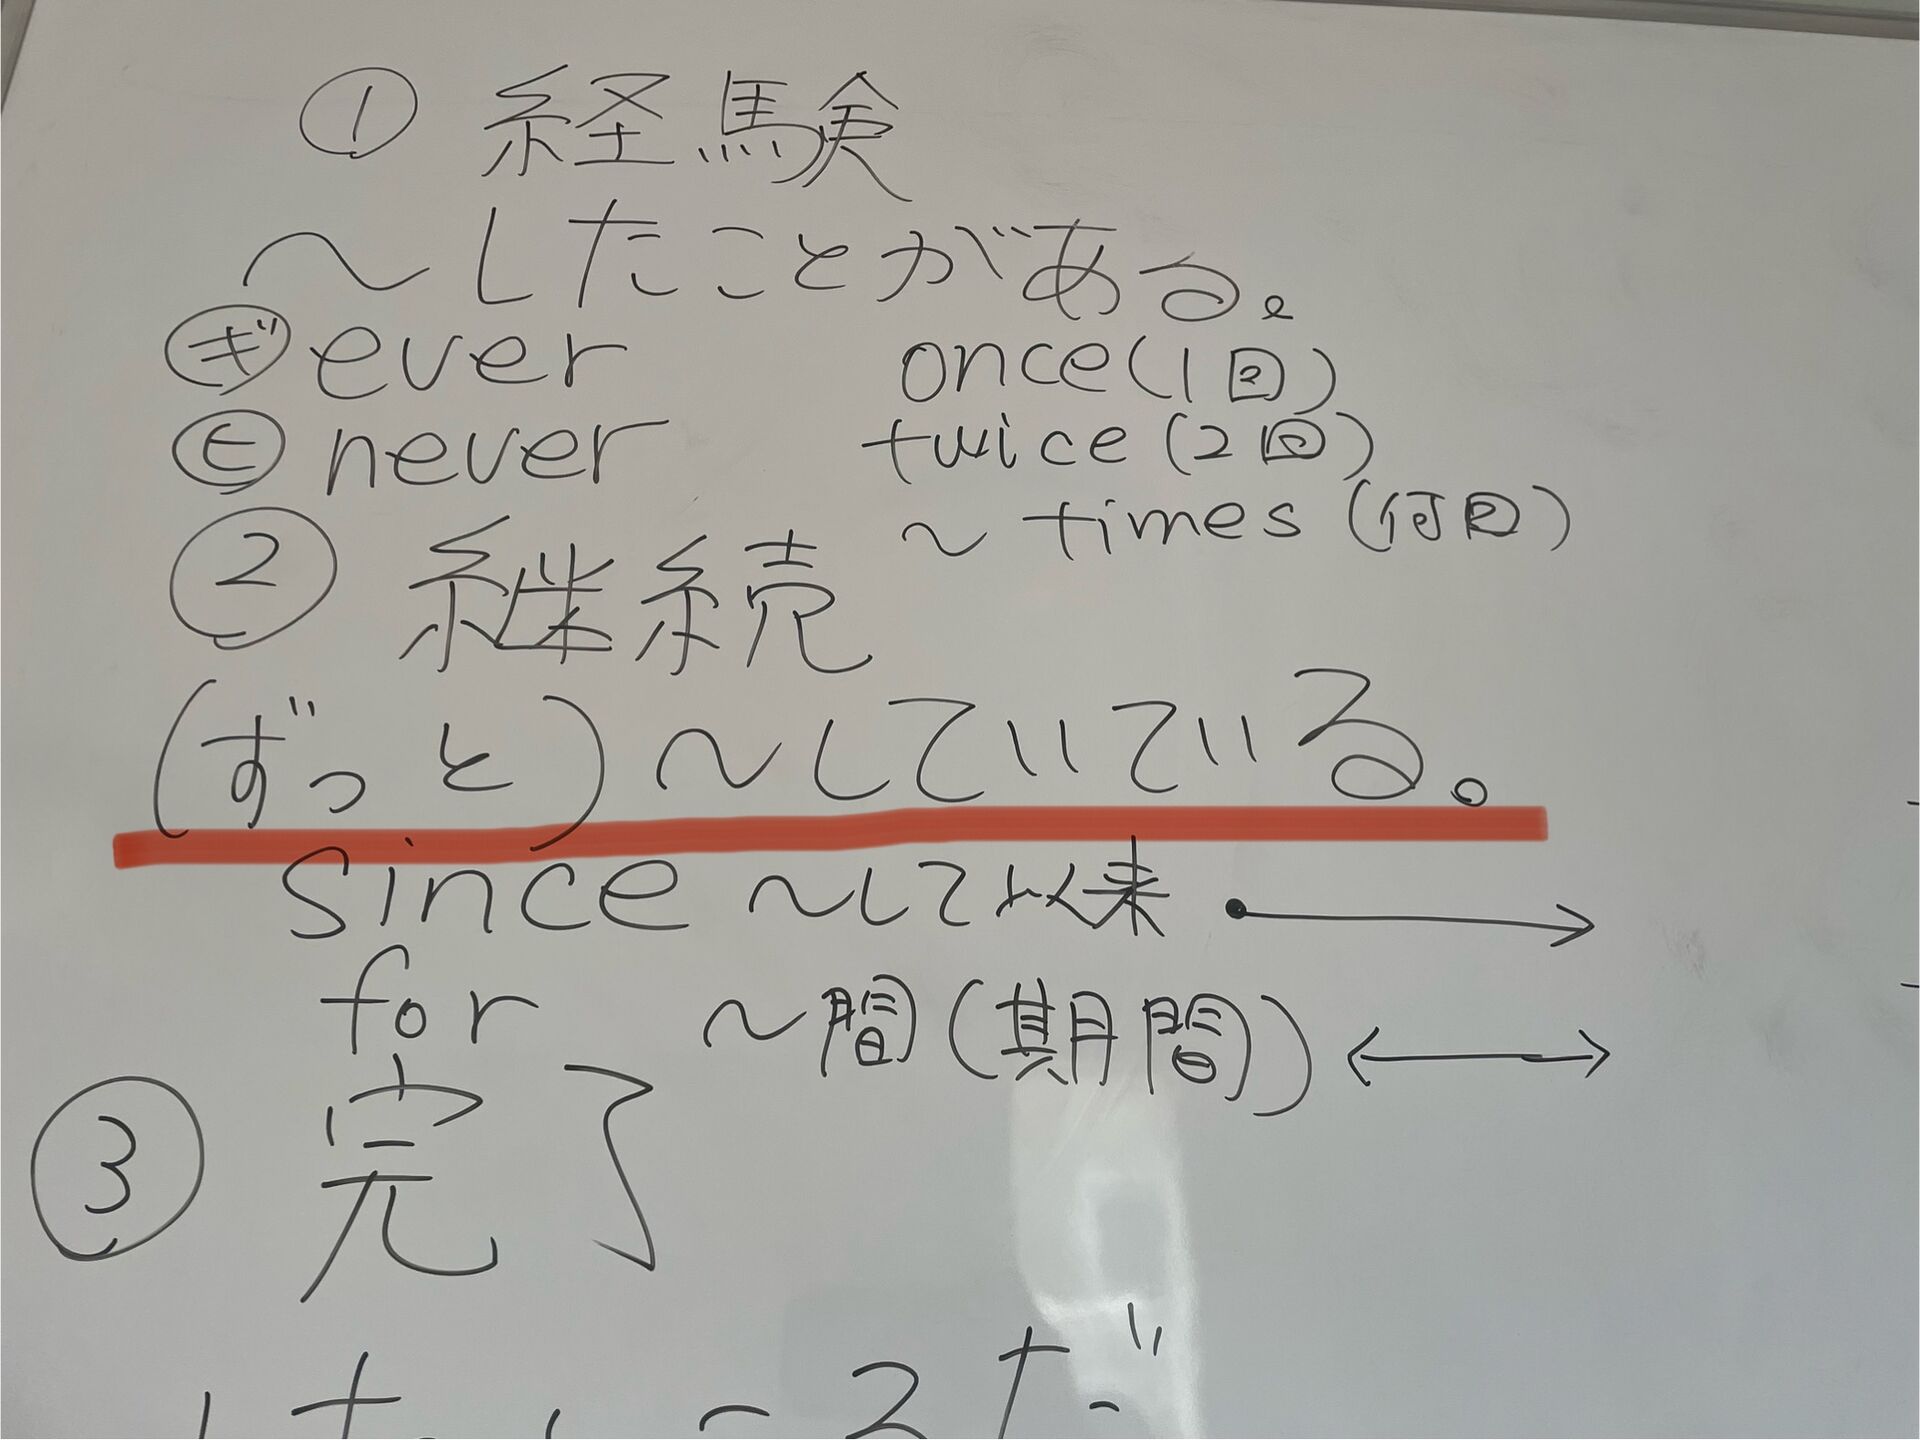 ① 経験
～したことがある。
ギ ever once(1回)
ヒ never twice(2回)
～ times(何回)
② 継続
(ずっと)～していている。
since ～して以来
for ～間(期間)
③ 完了